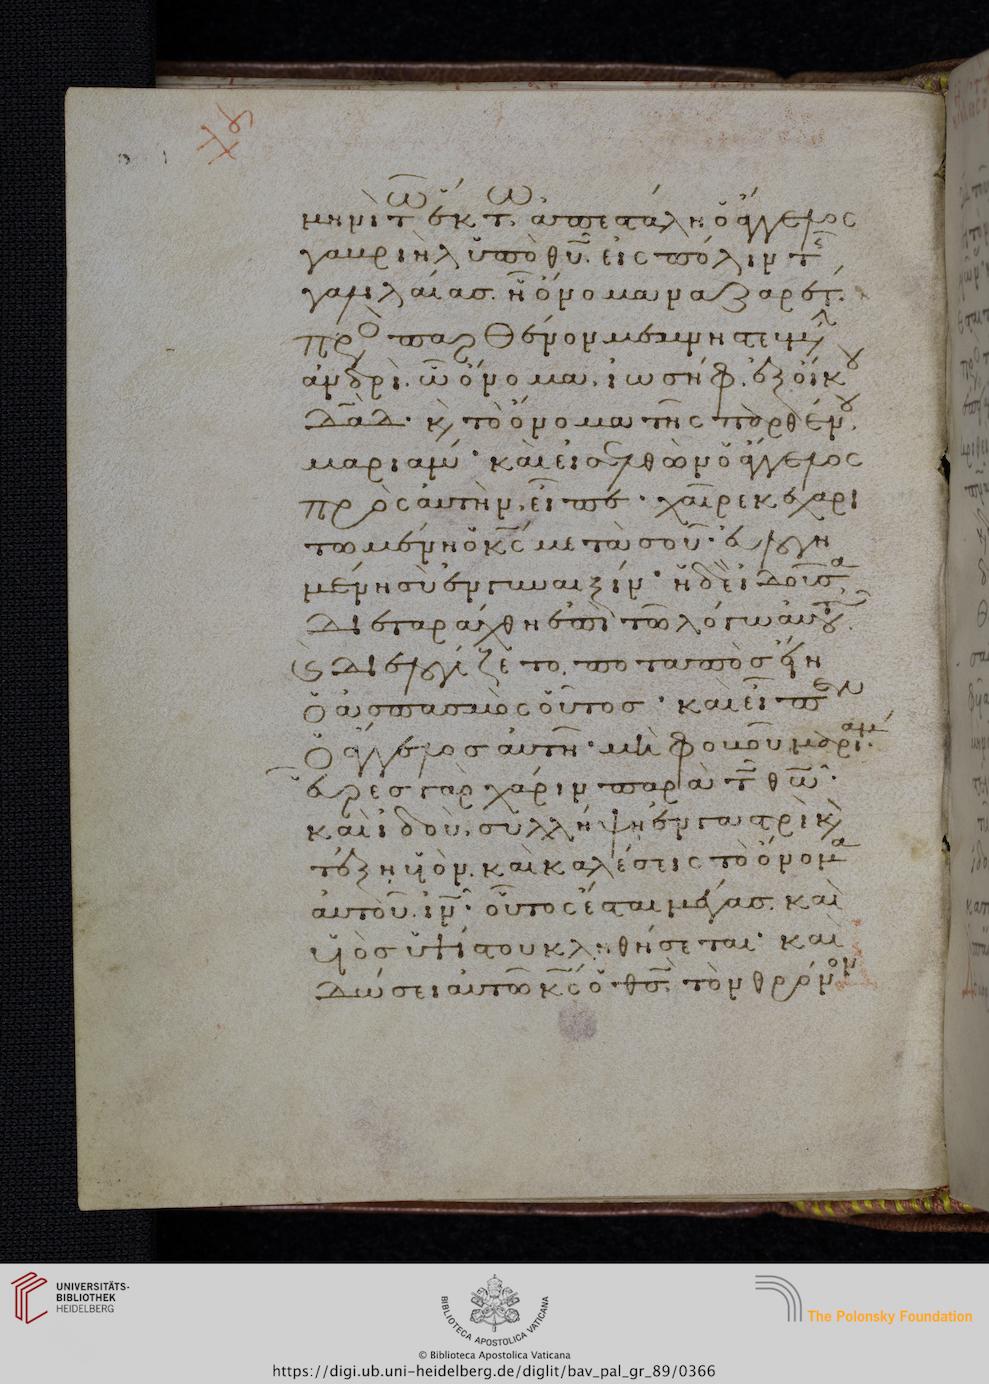 μηνὶ τῶ ἕκτω, ἀπεστάλη ὁ ἄγγελος
γαυριὴλ ὑπὸ θυ. εἰς πόλιν τῆς
γαλιλαίας. ἧ ὄνομα ναζαρέτ.
πρὸ παρθένον μεμνηστευμ
ἀνδρὶ. ὧ ὄνομα, ἰωσήφ. ἐξ οἴκου
δαδ. κ τὸ ὄνομα τῆς παρθένου,
μαριάμ. καὶ εἰσελθὼν ὁ ἄγγελος
πρὸς αὐτὴν, εἶπε. χαῖρε κεχαρι
τωμένη ὁ κς μετὰ σοῦ. εὐλογη
μένη σὺ ἐν γυναιξίν. ἡ δὲ ἰδοῦσα
διεταράχθη ἐπὶ τῶ λόγω αὐτοῦ.
κ διελογίζετο, ποταπὸς εἴη
ὁ ἀσπασμὸς οὗτος. καὶ εἶπεν
ὁ ἄγγελος αὐτῆ. μὴ φοβοῦ μαριάμ.
εὗρες γὰρ χάριν παρὰ τῶ θω.
καὶ ἰδοὺ, συλλήψη ἐν γαστρὶ κ
τέξη υἱὸν. καὶ καλέσεις τὸ ὄνομα
αὐτοῦ. ιν. οὗτος ἔσται μέγας. καὶ
υἱὸς ὑψίστου κληθήσεται. καὶ
δώσει αὐτῶ κς ὁ θς, τὸν θρόνον
UNIVERSITÄTS-
BIBLIOTHEK
HEIDELBERG
BIBLIOTECA APOSTOLICA VATICANA
The Polonsky Foundation
© Biblioteca Apostolica Vaticana
https://digi.ub.uni-heidelberg.de/diglit/bav_pal_gr_89/0366